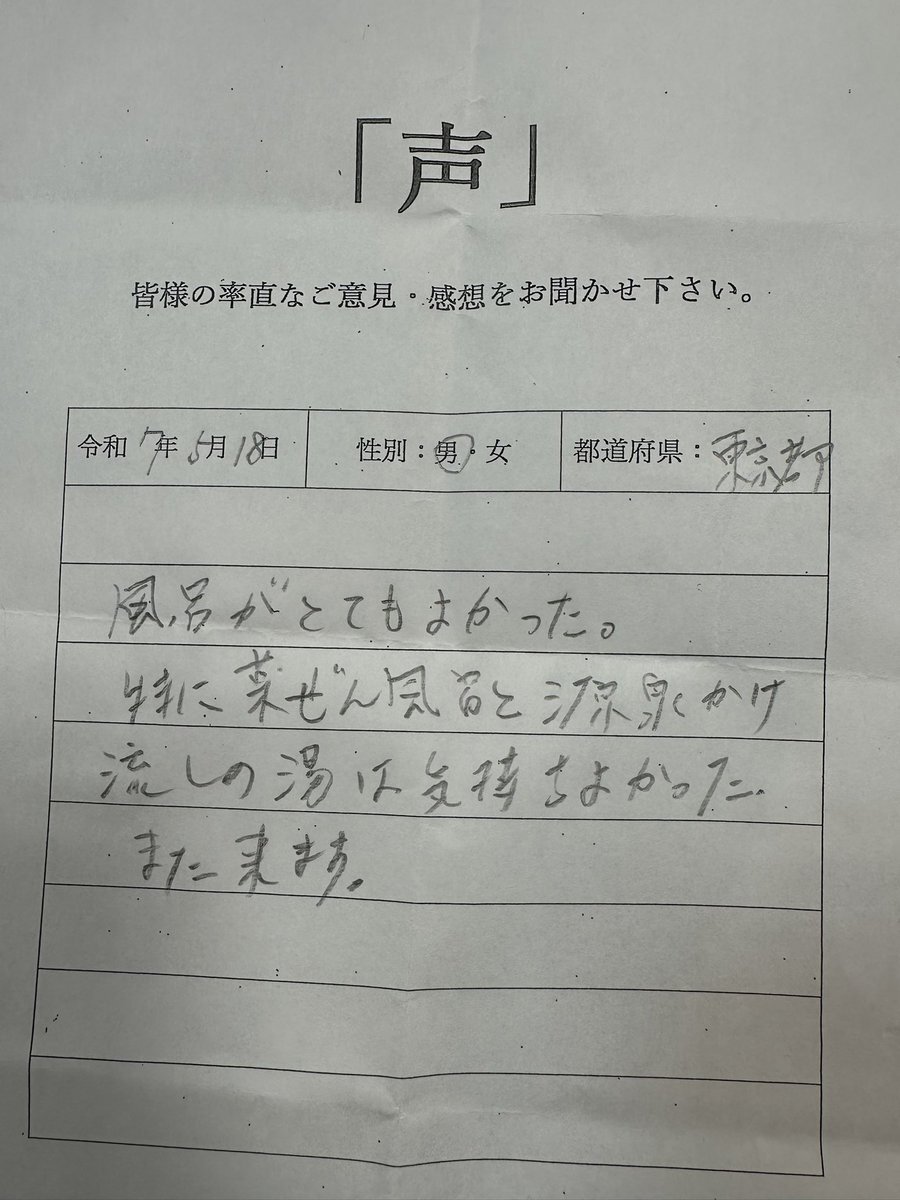 「声」
皆様の率直なご意見・感想をお聞かせ下さい。
令和7年5月18日 性別：男・女 都道府県：東京都
風呂がとてもよかった。
特に薬ぜん風呂と源泉かけ
流しの湯は気持ちよかった。
また来ます。